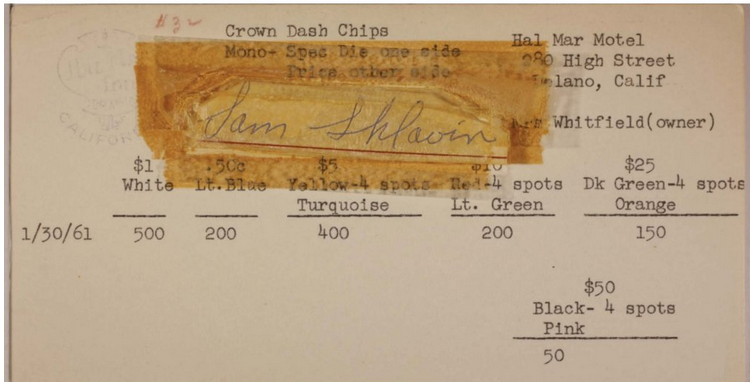 #32
Crown Dash Chips
Mono- Spec Die one side
Price other side
Hal Mar Motel
280 High Street
Delano, Calif
Whitfield(owner)
Sam Sklavin
CALIFOR
$1 .50c $5 $10 $25
White Lt.Blue Yellow-4 spots Red-4 spots Dk Green-4 spots
Turquoise Lt. Green Orange
1/30/61 500 200 400 200 150
$50
Black- 4 spots
Pink
50